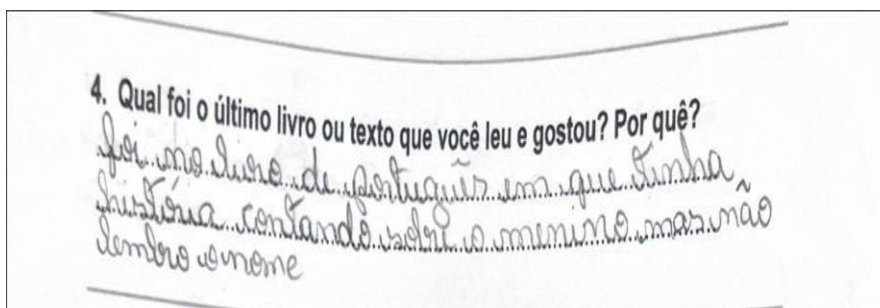 4. Qual foi o último livro ou texto que você leu e gostou? Por quê?
foi no livro de português em que tinha
história contando sobre o menino, mas não
lembro o nome